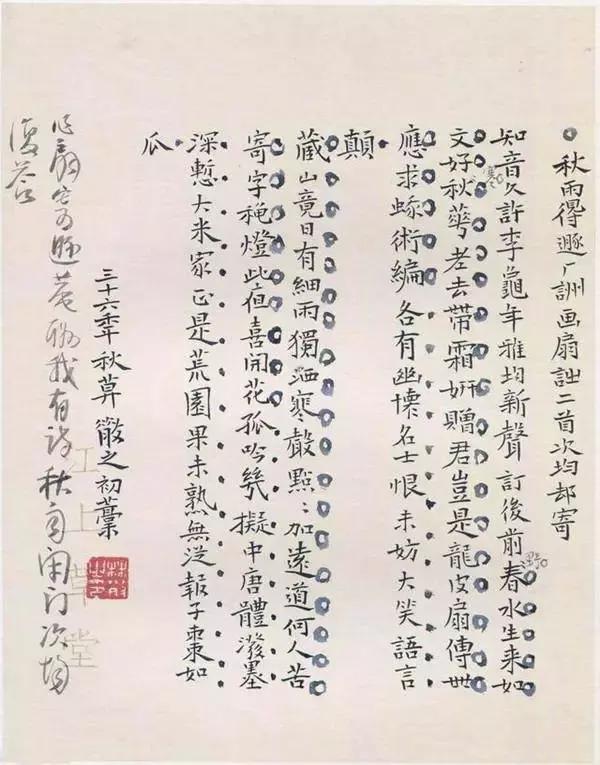 秋雨得遯厂詶画扇詩二首次均却寄
知音久許李龜年雅均新聲訂後前春水生来如
文好秋華老去帶霜妍贈君豈是龍皮扇傳世
應求蛾術編各有幽懷名士恨未妨大笑語言
顛
藏山竟日有細雨獨洒寒聲點〻加遠道何人苦
寄字穐燈此夜喜開花孤吟幾擬中唐體潑墨
深慙大米家正是荒園果未熟無從報子棗如
瓜
三十六年秋 之初藁
扇寄遯菴 我有詩秋雨閉門次均
復答
江上草堂